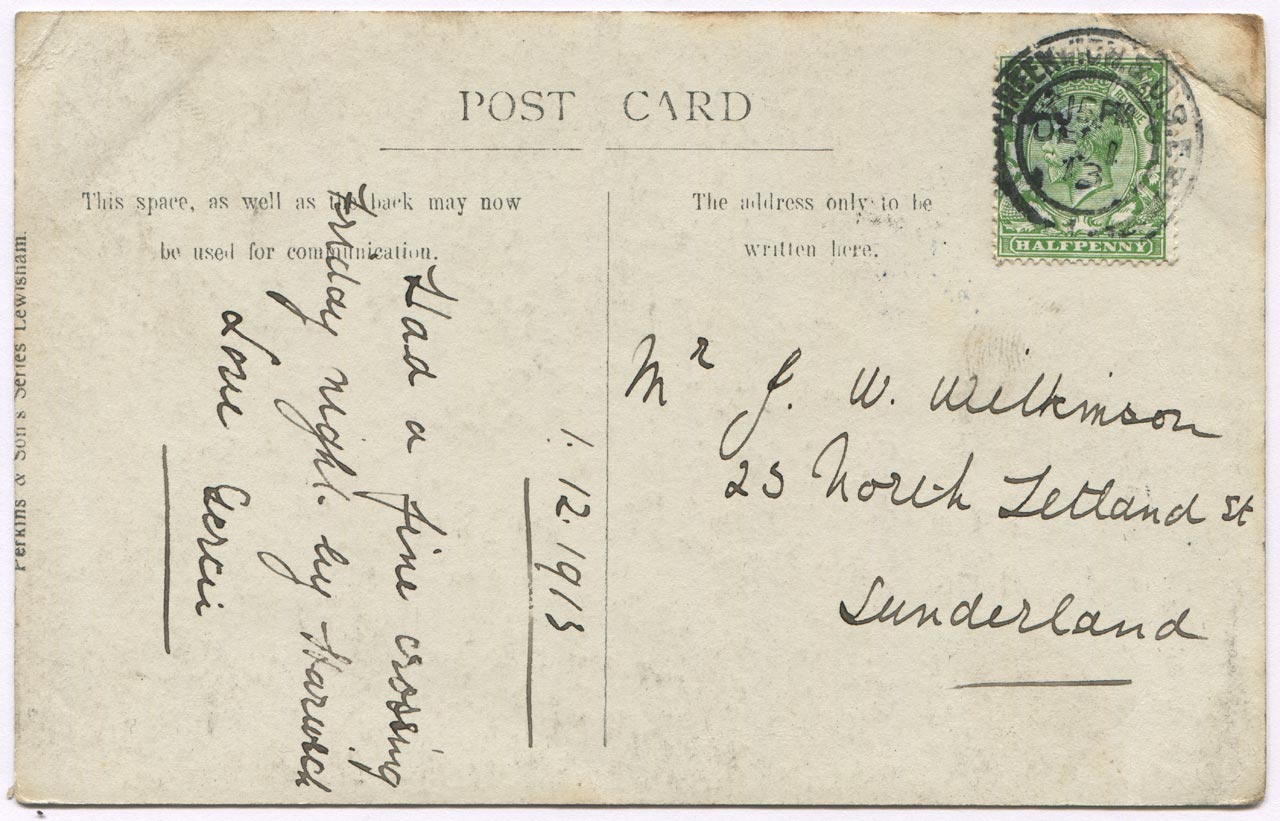 POST CARD
This space, as well as the back may now
be used for communication.
The address only to be
written here.
HALFPENNY
Perkins & Son's Series Lewisham.
1.12.1913
Had a fine crossing
Friday night by Harwich
Love
Mr J. W. Wilkinson
23 North Setland St
Sunderland